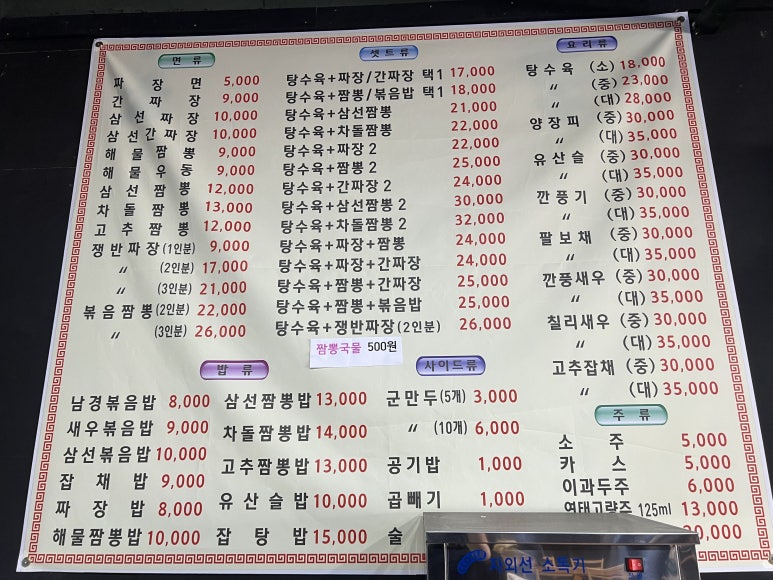 면 류
짜 장 면 5,000
간 짜 장 9,000
삼 선 짜 장 10,000
삼 선 간 짜 장 10,000
해 물 짬 뽕 9,000
해 물 우 동 9,000
삼 선 짬 뽕 12,000
차 돌 짬 뽕 13,000
고 추 짬 뽕 12,000
쟁반짜장 (1인분) 9,000
〃 (2인분) 17,000
〃 (3인분) 21,000
볶음짬뽕 (2인분) 22,000
〃 (3인분) 26,000
셋트류
탕수육+짜장/간짜장 택1 17,000
탕수육+짬뽕/볶음밥 택1 18,000
탕수육+삼선짬뽕 21,000
탕수육+차돌짬뽕 22,000
탕수육+짜장 2 22,000
탕수육+짬뽕 2 25,000
탕수육+간짜장 2 24,000
탕수육+삼선짬뽕 2 30,000
탕수육+차돌짬뽕 2 32,000
탕수육+짜장+짬뽕 24,000
탕수육+짜장+간짜장 24,000
탕수육+짬뽕+간짜장 25,000
탕수육+짬뽕+볶음밥 25,000
탕수육+쟁반짜장 (2인분) 26,000
짬뽕국물 500원
요리류
탕 수 육 (소) 18,000
〃 (중) 23,000
〃 (대) 28,000
양 장 피 (중) 30,000
〃 (대) 35,000
유 산 슬 (중) 30,000
〃 (대) 35,000
깐 풍 기 (중) 30,000
〃 (대) 35,000
팔 보 채 (중) 30,000
〃 (대) 35,000
깐풍새우 (중) 30,000
〃 (대) 35,000
칠리새우 (중) 30,000
〃 (대) 35,000
고추잡채 (중) 30,000
〃 (대) 35,000
밥 류
남경볶음밥 8,000
새우볶음밥 9,000
삼선볶음밥 10,000
잡 채 밥 9,000
짜 장 밥 8,000
해물짬뽕밥 10,000
삼선짬뽕밥 13,000
차돌짬뽕밥 14,000
고추짬뽕밥 13,000
유 산 슬 밥 10,000
잡 탕 밥 15,000
사이드류
군만두 (5개) 3,000
〃 (10개) 6,000
공기밥 1,000
곱빼기 1,000
술
주 류
소 주 5,000
카 스 5,000
이과두주 6,000
연태고량주 125ml 13,000
자외선 소독기